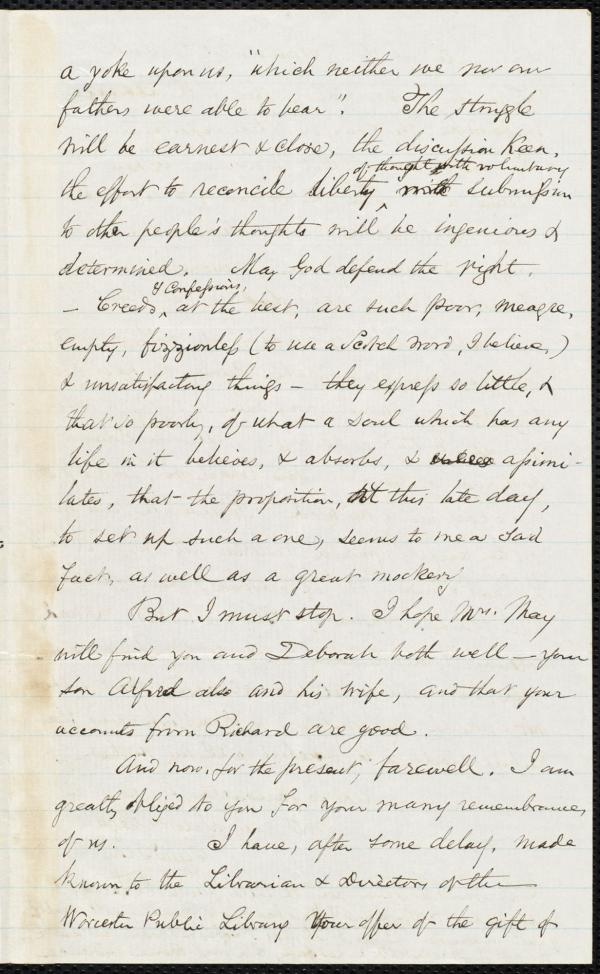 a yoke upon us, "which neither we nor our
fathers were able to bear". The struggle
will be earnest & close, the discussion keen,
of thought with voluntary
the effort to reconcile liberty ^ with submission
to other people's thoughts will be ingenious &
determined. May God defend the right.
& Confessions,
– Creeds, ^ at the best, are such poor, meagre,
empty, fizzionless (to use a Scotch word, I believe,)
& unsatisfactory things – they express so little, &
that so poorly, of what a soul which has any
life in it believes, & absorbs, & assimi-
lates, that the proposition, at this late day,
to set up such a one, seems to me a sad
fact, as well as a great mockery.
But I must stop. I hope Mrs. May
will find you and Deborah both well – your
son Alfred also and his wife, and that your
accounts from Richard are good.
And now, for the present, farewell. I am
greatly obliged to you for your many remembrances
of us. I have, after some delay, made
known to the Librarian & Directors of the
Worcester Public Library your offer of the gift of